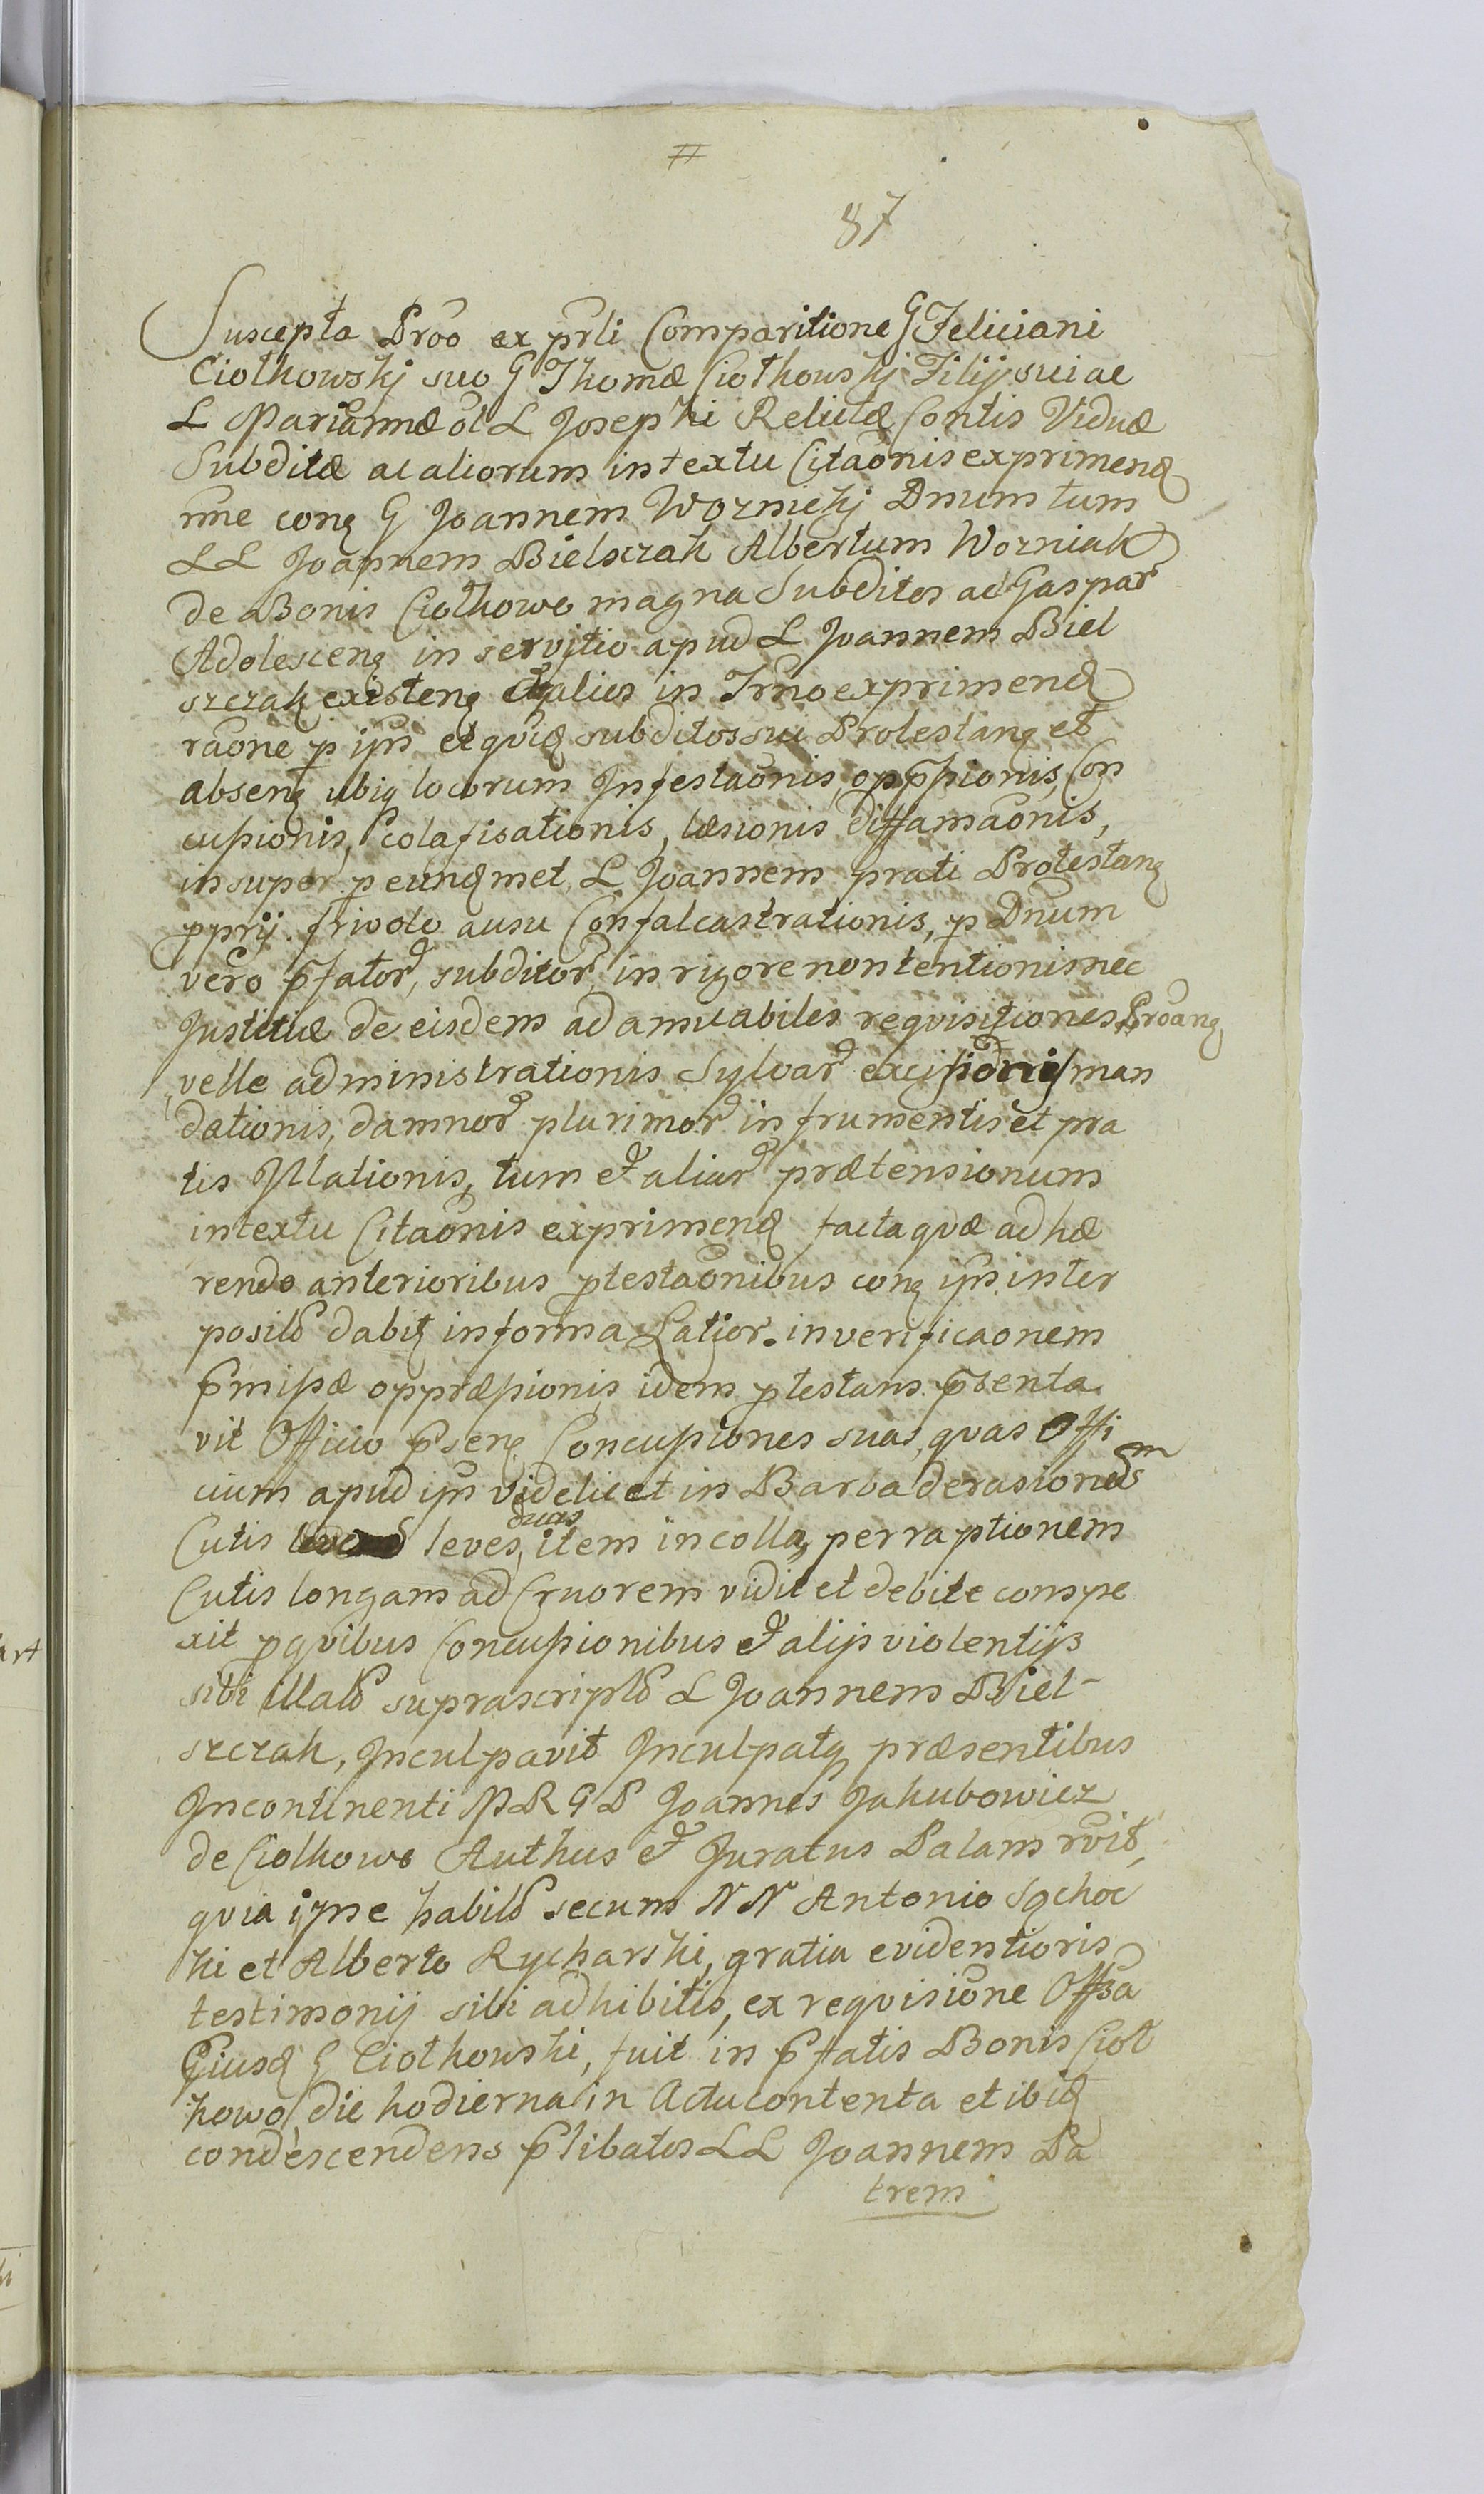 #
87
Suscepta Prõo ex prli Comparitione G Feliciani
Ciołkowskj suo G Thomæ Ciołkowskj Filij sui ac
L Mariannæ ol L Josephi Relictæ Contis Viduæ
Subditæ ac aliorum in textu Citaõnis exprimenđ
nñe conꝫ G Joannem Woznickj Dnum tum
LL Joannem Bielsczak Albertum Wozniak
de Bonis Ciołkowo magna Subditos ac Gaspar
Adolescenꝫ in servitio apud L Joannem Biel
szczak existenꝫ et alios in Trno exprimenđ
raõne p ipm et quid subditos sui Protestanꝫ et
absenꝫ ubiq locorum Infestaõnis, opp̃ssionis, Con
cussionis, Colafisationis, læsionis diffamaõnis,
insuper p eundmet L Joannem prati Protestanꝫ
pprij frivolo ausu Confalcastrationis, p Dnum
vero p̃fator, subditor, in rigore non tentionis nec
Justitiæ de eisdem ad amicabiles requisitiones Prõanꝫ
velle administrationis Sylvar excissionis man
dationis, damnor plurimor in frumentis et pra
tis Illationis, tum et aliar prætensionum
in textu Citaõnis exprimenđ factaquæ adhæ
rendo anterioribus ptestaõnibus conꝫ ipm inter
posit dabitꝫ in forma Latior. in verificaonem
p̃missæ oppræssionis idem ptestans p̃senta
vit Officio p̃senꝫ Concussiones suas, quas Offi
cium apud ipm videlicet in Barba derasionem
Cutis leves, duas item in collo, perraptionem
Cutis longam ad Cruorem vidit et debite conspe
xit p quibus Concussionibus et alijs violentijs
sibi illat suprascript L Joannem Biel-
szczak, Inculpavit Inculpatq præsentibus
Incontinenti MRGP Joannes Jakubowicz
de Ciolkowo Authus et Juratus Palam rvit,
quia ipse habit secum NN Antonio Sęchoc
ki et Alberto Rycharski, gratia evidentioris
testimonij sibi adhibitis, ex requisiõne Offsa
Ejusđ G Ciołkowski, fuit in p̃fatis Bonis Cioł
kowo die hodierna in Actu contenta et ibiđ
condescendens p̃libatos LL Joannem Pa
trem